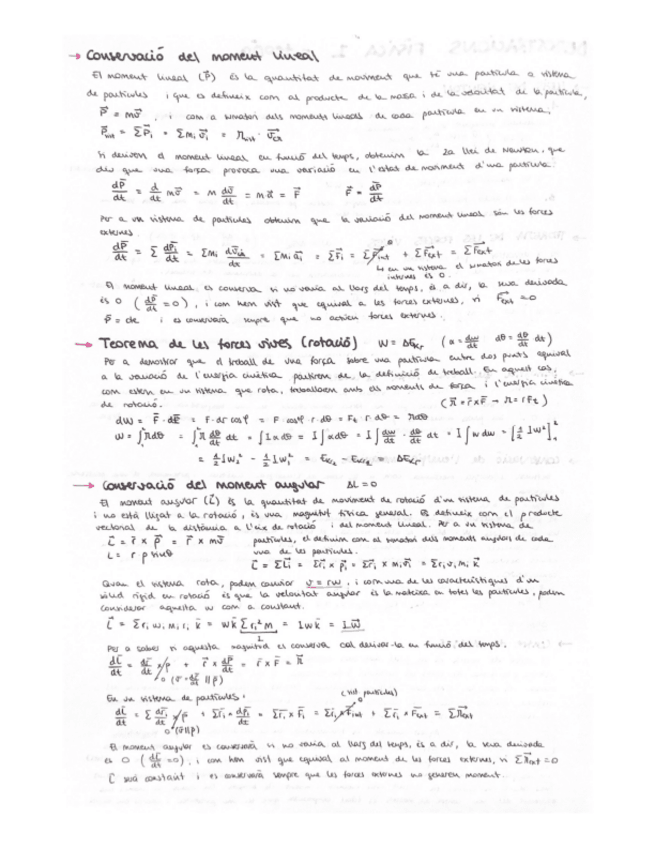 → Conservació del moment lineal
El moment lineal (P⃗) és la quantitat de moviment que té una partícula o sistema
de partícules i que es defineix com al producte de la massa i de la velocitat de la partícula,
P⃗ = mv⃗ , i com a sumatori dels moments lineals de cada partícula en un sistema,
P⃗sist = ΣP⃗i = Σmi v⃗i = Msist · v⃗CM
Si derivem el moment lineal en funció del temps, obtenim la 2a llei de Newton, que
diu que una força provoca una variació en l'estat de moviment d'una partícula.
dP⃗/dt = d/dt mv⃗ = m dv⃗/dt = ma⃗ = F⃗ F⃗ = dP⃗/dt
Per a un sistema de partícules obtenim que la variació del moment lineal són les forces
externes.
dP⃗/dt = Σ dP⃗i/dt = Σmi dv⃗i/dt = Σmi a⃗i = ΣF⃗i = ΣF⃗int + ΣF⃗ext = ΣF⃗ext
↳ en un sistema el sumatori de les forces
internes és 0.
El moment lineal es conserva si no varia al llarg del temps, és a dir, la seva derivada
és 0 (dP⃗/dt = 0), i com hem vist que equival a les forces externes, si F⃗ext = 0
P⃗ = cte i es conservarà sempre que no actuen forces externes.
→ Teorema de les forces vives (rotació) W = ΔEcr (α = dω/dt dθ = dθ/dt dt)
Per a demostrar que el treball de una força sobre una partícula entre dos punts equival
a la variació de l'energia cinètica partirem de la definició de treball. En aquest cas,
com estem en un sistema que rota, treballarem amb els moments de força i l'energia cinètica
de rotació. (M⃗ = r⃗ × F⃗ → M = r Ft)
dW = F⃗ · dr⃗ = F · dr cosφ = F cosφ r · dθ = Ft r dθ = Mdθ
W = ∫Mdθ = ∫M dθ/dt dt = ∫Iα dθ = I∫αdθ = I∫ dω/dt · dθ/dt dt = I∫ω dω = [½ Iω²]
= ½ Iω₂² − ½ Iω₁² = Ecr₂ − Ecr₁ = ΔEcr
→ Conservació del moment angular ΔL = 0
El moment angular (L⃗) és la quantitat de moviment de rotació d'un sistema de partícules
i no està lligat a la rotació, és una magnitud física general. Es defineix com el producte
vectorial de la distància a l'eix de rotació i del moment lineal. Per a un sistema de
L⃗ = r⃗ × P⃗ = r⃗ × mv⃗ partícules, el definim com al sumatori dels moments angulars de cada
L = r · p sinθ una de les partícules.
L⃗ = ΣL⃗i = Σr⃗i × p⃗i = Σr⃗i × mi v⃗i = Σri vi mi k⃗
Quan el sistema rota, podem canviar v = rω , i com una de les característiques d'un
sòlid rígid en rotació és que la velocitat angular és la mateixa en totes les partícules, podem
considerar aquesta ω com a constant.
L⃗ = Σ ri ωi mi ri k⃗ = ωk⃗ Σ ri² m = Iωk⃗ = Iω⃗
I
Per a saber si aquesta magnitud es conserva cal derivar-la en funció del temps.
dL⃗/dt = dr⃗/dt × p⃗ + r⃗ × dP⃗/dt = r⃗ × F⃗ = M⃗
0 (v⃗ = dr⃗/dt || p⃗)
En un sistema de partícules,
(int. partícules)
dL⃗/dt = Σ dr⃗i/dt × p⃗ + Σr⃗i × dp⃗i/dt = Σr⃗i × F⃗i = Σr⃗i × F⃗int + Σr⃗i × F⃗ext = ΣM⃗ext
0 (v⃗ || p⃗)
El moment angular es conservarà si no varia al llarg del temps, és a dir, la seva derivada
és 0 (dL⃗/dt = 0), i com hem vist que equival al moment de les forces externes, si ΣM⃗ext = 0
L⃗ serà constant i es conservarà sempre que les forces externes no generen moment.